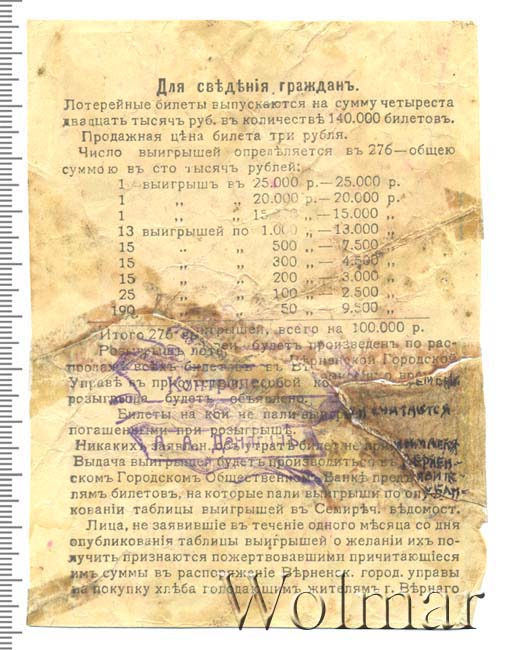 Для свѣдѣнія граждан.
Лотерейные билеты выпускаются на сумму четыреста
двадцать тысяч руб. въ количествѣ 140.000 билетовъ.
Продажная цѣна билета три рубля.
Число выигрышей опредѣляется въ 276—общею
суммою въ сто тысяч рублей:
1 выигрыш въ 25.000 р.—25.000 р.
1 „ „ 20.000 р.—20.000 р.
1 „ „ „—15.000 „
13 выигрышей по 1.000 „—13.000 „
15 „ „ 500 „—7.500 „
15 „ „ 300 „—4.500 „
15 „ „ 200 „—3.000 „
25 „ „ 100 „—2.500 „
190 „ 50 „—9.500 „
Итого 276 выигрышей, всего на 100.000 р.
Розыгрыш будет произведен по рас-
Вѣрненской Городской
Управѣ в
розыгрыша будет объявлено.
Контролер
Билеты на кой не пали выигрыши считаются
погашенными при розыгрышѣ.
Никаких заявлен. об утратѣ билет не
А. А.
Выдача выигрышей будет производиться въ
ском Городском Общественном Банкѣ
лям билетов, на которые пали выигрыши по опубли-
ковании таблицы выигрышей въ Семирѣч. вѣдомост.
Лица, не заявившіе въ теченіе одного мѣсяца со дня
опубликования таблицы выигрышей о желаніи ихъ по-
лучить признаются пожертвовавшими причитающіеся
имъ суммы в распоряжение Вѣрненск. город. управы
на покупку хлѣба голодающим жителям г. Вѣрнаго
Wolmar